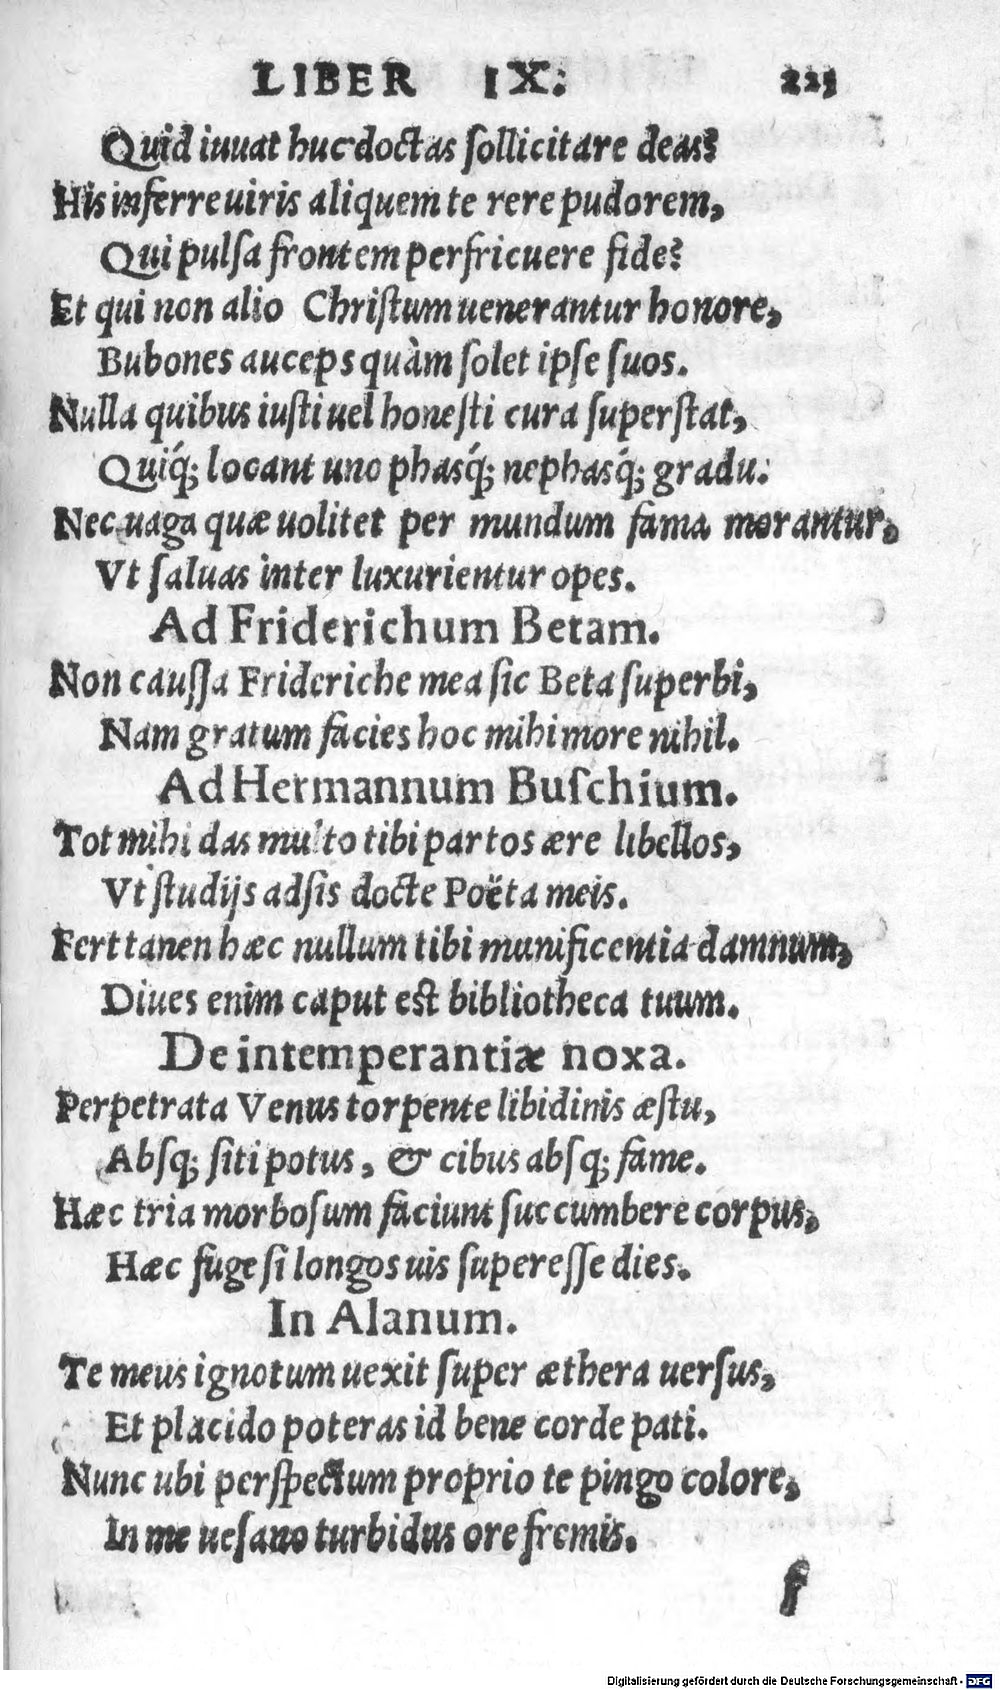 LIBER IX. 225
Quid iuuat huc doctas ſollicitare deas?
His inferre uiris aliquem te rere pudorem,
Qui pulſa frontem perfricuere fide?
Et qui non alio Chriſtum uenerantur honore,
Bubones auceps quàm ſolet ipſe ſuos.
Nulla quibus iuſti uel honeſti cura ſuperſtat,
Quiq́; locant uno phasq́; nephasq́; gradu.
Nec uaga quæ uolitet per mundum fama morantur,
Vt ſaluas inter luxurientur opes.
Ad Friderichum Betam.
Non cauſſa Frideriche mea ſic Beta ſuperbi,
Nam gratum facies hoc mihi more nihil.
Ad Hermannum Buſchium.
Tot mihi das multo tibi partos ære libellos,
Vt ſtudijs adſis docte Poëta meis.
Fert tanen hæc nullum tibi munificentia damnum,
Diues enim caput est bibliotheca tuum.
De intemperantiæ noxa.
Perpetrata Venus torpente libidinis æſtu,
Abſq; ſiti potus, & cibus abſq; fame.
Hæc tria morboſum faciunt ſuccumbere corpus,
Hæc fuge ſi longos uis ſupereſſe dies.
In Alanum.
Te meus ignotum uexit ſuper æthera uerſus,
Et placido poteras id bene corde pati.
Nunc ubi perſpectum proprio te pingo colore,
In me ueſano turbidus ore fremis.
f
Digitalisierung gefördert durch die Deutsche Forschungsgemeinschaft - DFG